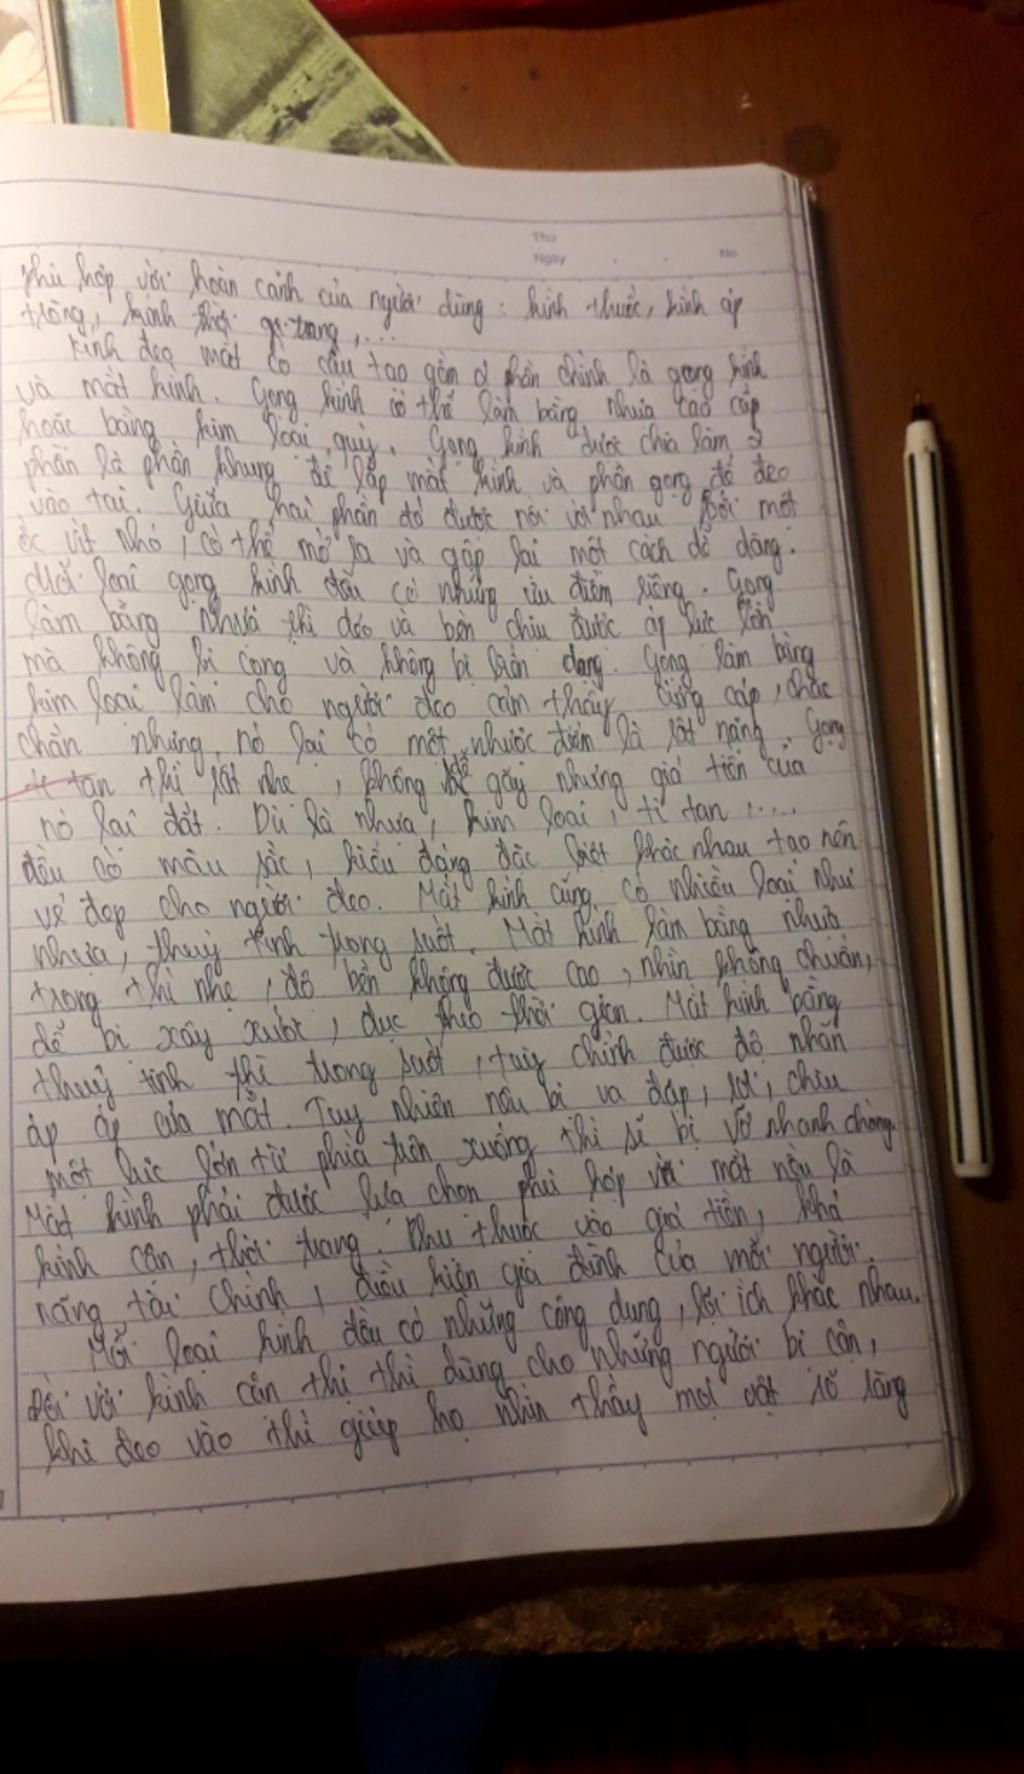 Thứ
Ngày No
phù hợp với hoàn cảnh của người dùng : kính thuốc, kính áp
tròng, kính thời trang,...
Kính đeo mắt có cấu tạo gồm 2 phần chính là gọng kính
và mắt kính. Gọng kính có thể làm bằng nhựa cao cấp
hoặc bằng kim loại quý. Gọng kính được chia làm 2
phần là phần khung để lắp mắt kính và phần gọng để đeo
vào tai. Giữa hai phần đó được nối với nhau bởi một
ốc vít nhỏ, có thể mở ra và gập lại một cách dễ dàng.
Mỗi loại gọng kính đều có những ưu điểm riêng. Gọng
làm bằng nhựa thì dẻo và bền chịu được áp lực lớn
mà không bị cong và không bị biến dạng. Gọng làm bằng
kim loại làm cho người đeo cảm thấy cứng cáp, chắc
chắn nhưng nó lại có một nhược điểm là rất nặng. Gọng
ti tan thì rất nhẹ, không dễ gãy nhưng giá tiền của
nó lại đắt. Dù là nhựa, kim loại, ti tan,....
đều có màu sắc, kiểu dáng đặc biệt khác nhau tạo nên
vẻ đẹp cho người đeo. Mắt kính cũng có nhiều loại như
nhựa, thuỷ tinh trong suốt. Mắt kính làm bằng nhựa
trong thì nhẹ, độ bền không được cao, nhìn không chuẩn,
dễ bị xây xước, đục theo thời gian. Mắt kính bằng
thuỷ tinh thì trong suốt, tuỳ chỉnh được độ nhãn
áp áp của mắt. Tuy nhiên nếu bị va đập, rơi, chịu
một lực lớn từ phía trên xuống thì sẽ bị vỡ nhanh chóng.
Mắt kính phải được lựa chọn phù hợp với mắt nếu là
kính cận, thời trang. Phụ thuộc vào giá tiền, khả
năng tài chính, điều kiện gia đình của mỗi người.
Mỗi loại kính đều có những công dụng, lợi ích khác nhau.
Đối với kính cận thị thì dùng cho những người bị cận,
khi đeo vào thì giúp họ nhìn thấy mọi vật rõ ràng